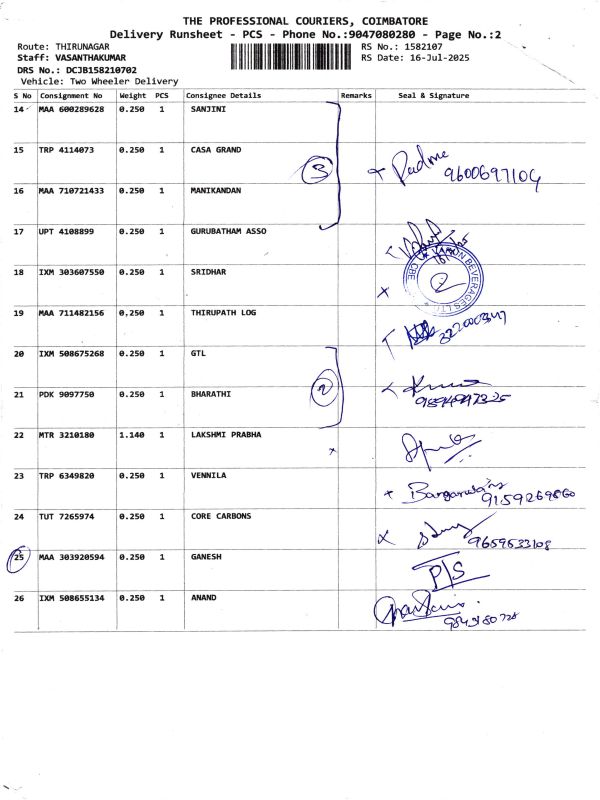 THE PROFESSIONAL COURIERS, COIMBATORE
Delivery Runsheet - PCS - Phone No.:9047080280 - Page No.:2
Route: THIRUNAGAR
RS No.: 1582107
Staff: VASANTHAKUMAR
RS Date: 16-Jul-2025
DRS No.: DCJB158210702
Vehicle: Two Wheeler Delivery
S No Consignment No Weight PCS Consignee Details Remarks Seal & Signature
14 MAA 600289628 0.250 1 SANJINI
15 TRP 4114073 0.250 1 CASA GRAND
3 Padma 9600697104
16 MAA 710721433 0.250 1 MANIKANDAN
17 UPT 4108899 0.250 1 GURUBATHAM ASSO
18 IXM 303607550 0.250 1 SRIDHAR
BEVERAGES LTD CBE
19 MAA 711482156 0.250 1 THIRUPATH LOG
20 IXM 508675268 0.250 1 GTL
21 PDK 9097750 0.250 1 BHARATHI
2
22 MTR 3210180 1.140 1 LAKSHMI PRABHA
x
23 TRP 6349820 0.250 1 VENNILA
9159269860
24 TUT 7265974 0.250 1 CORE CARBONS
9659533108
25 MAA 303920594 0.250 1 GANESH
P/S
26 IXM 508655134 0.250 1 ANAND